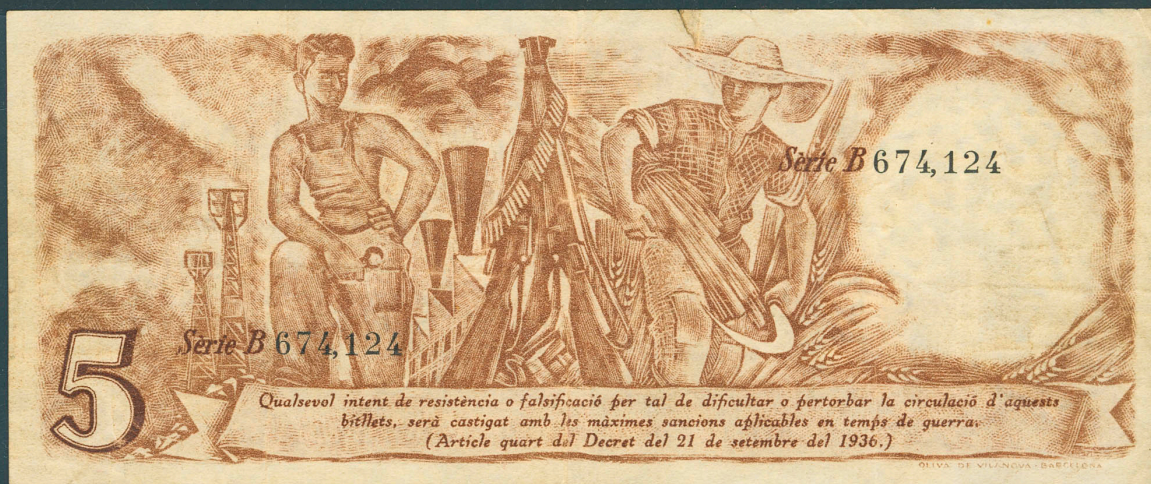 Sèrie B 674,124
Sèrie B 674,124
5
Qualsevol intent de resistència o falsificació per tal de dificultar o pertorbar la circulació d'aquests
bitllets, serà castigat amb les màximes sancions aplicables en temps de guerra.
(Article quart del Decret del 21 de setembre del 1936.)
OLIVA DE VILANOVA - BARCELONA